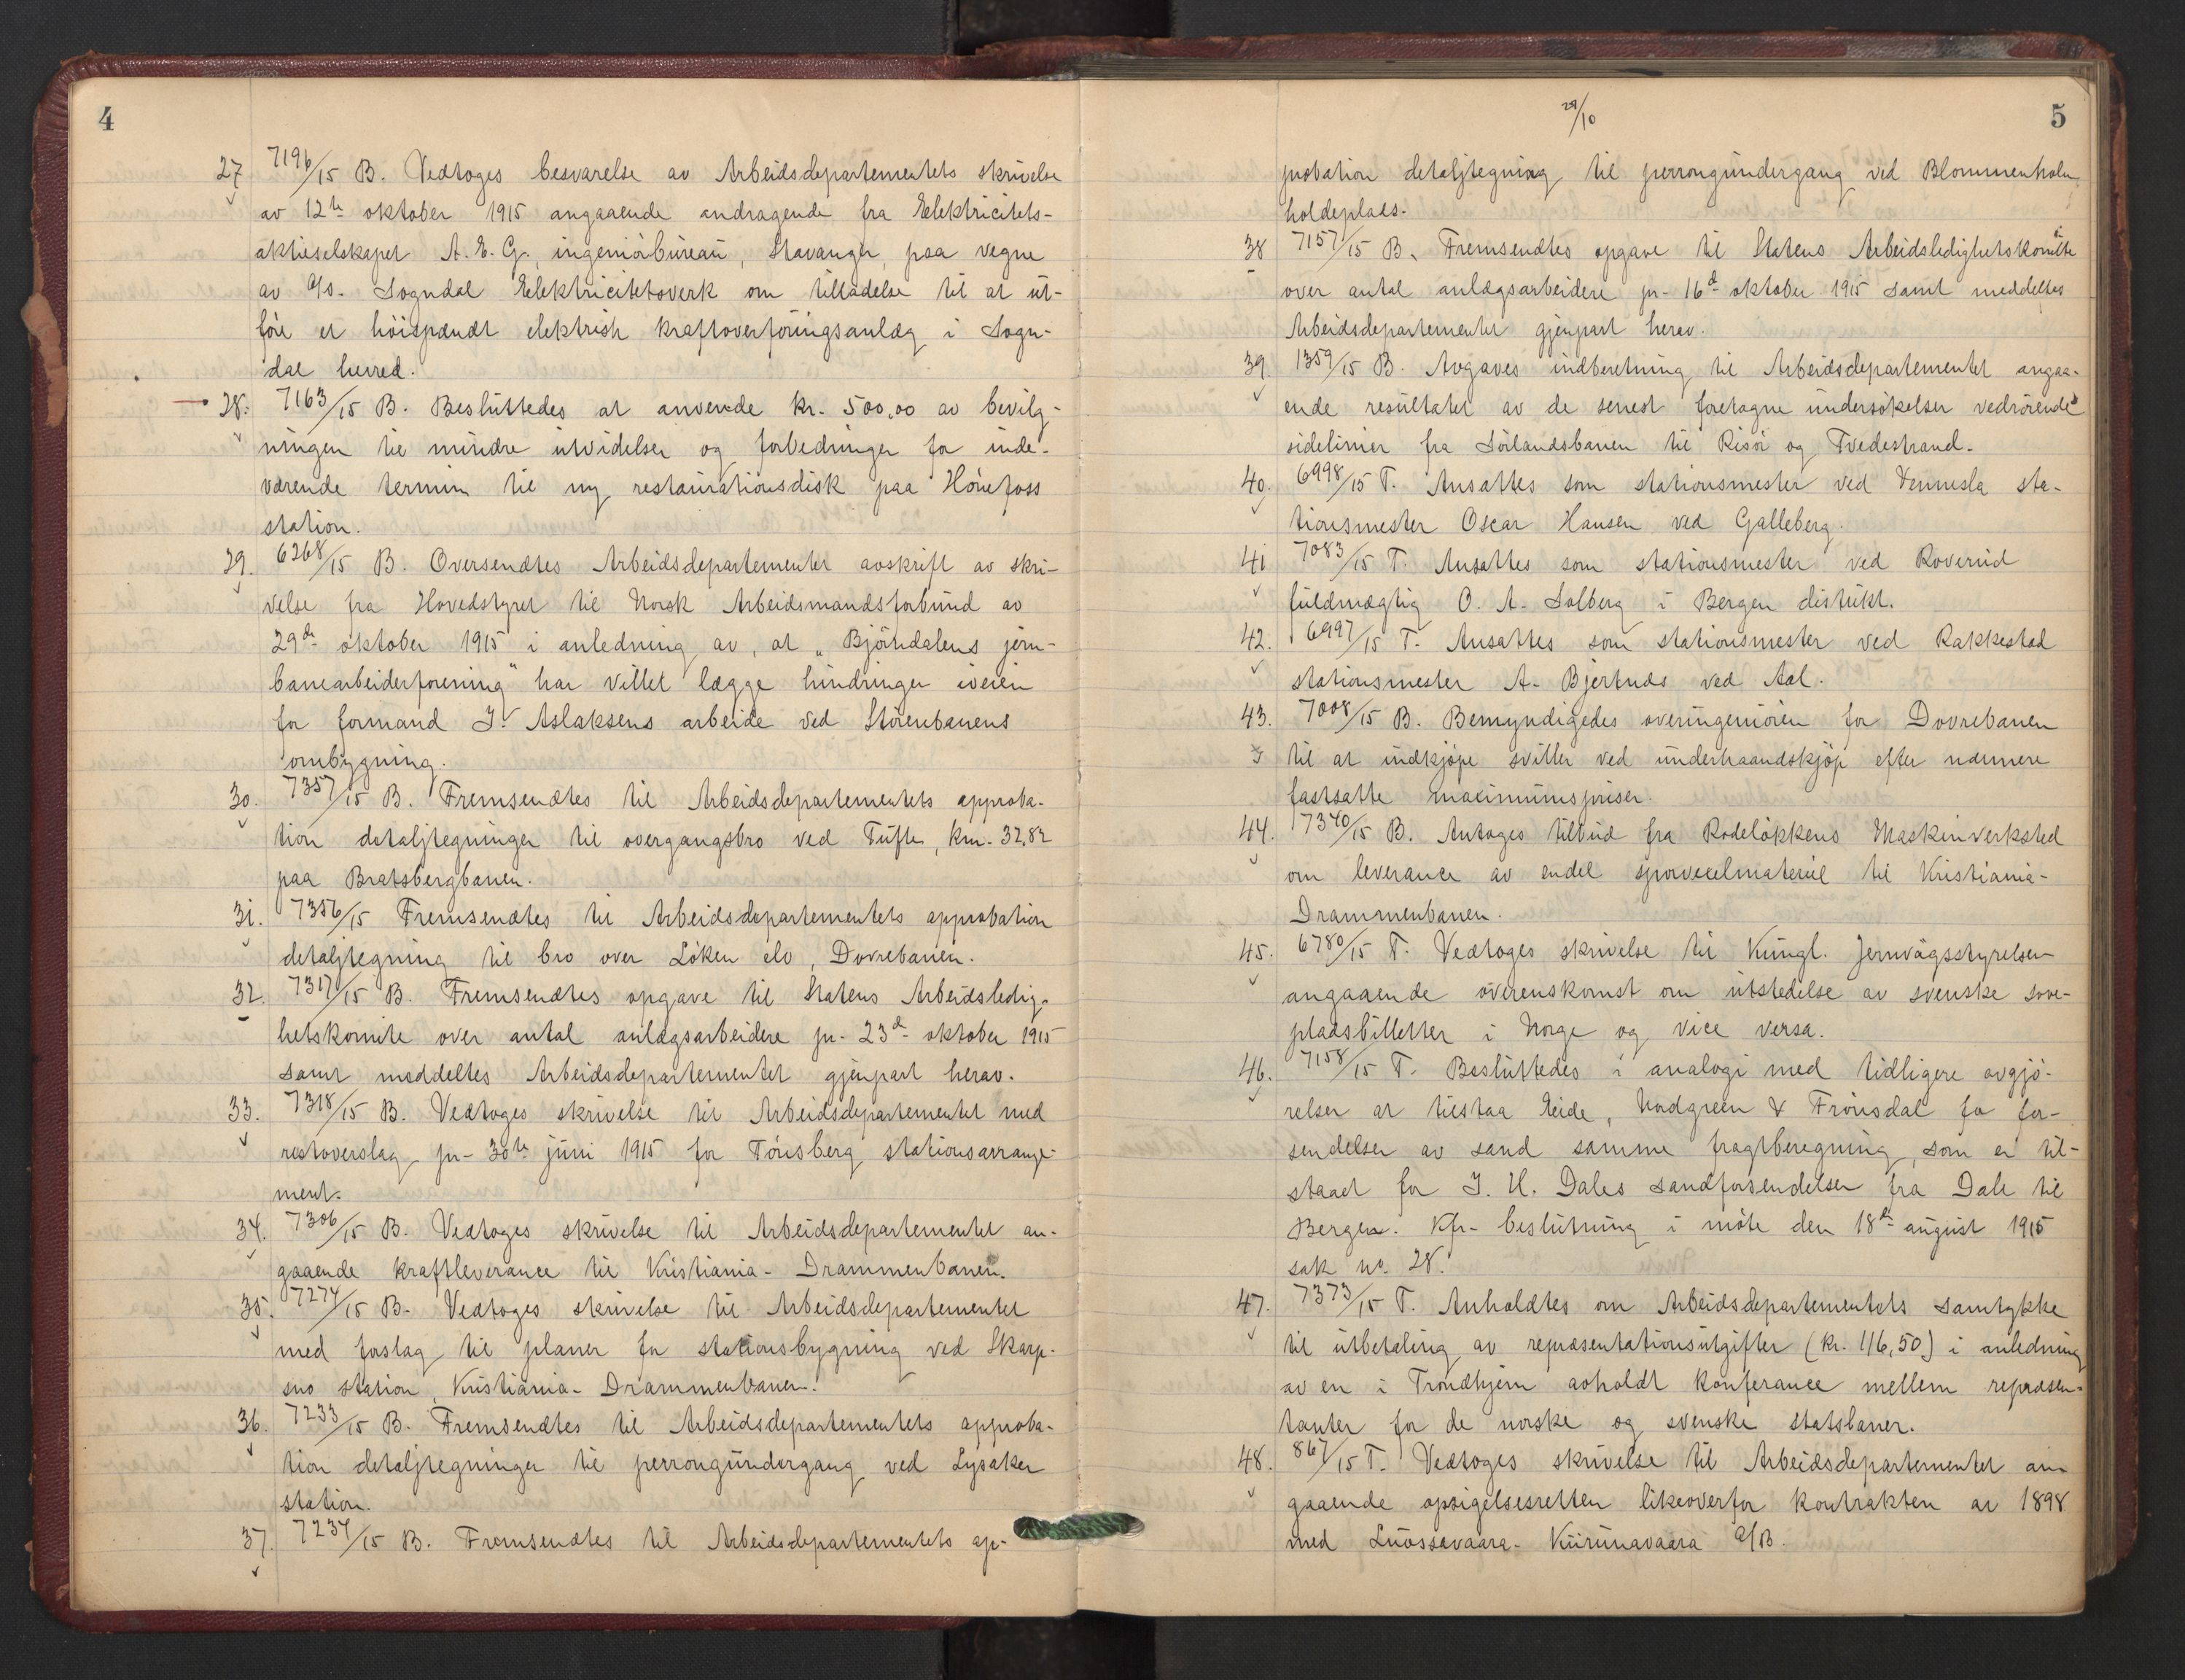 4
27 7196/15 B. Vedtoges besvarelse av Arbeidsdepartementets skrivelse
av 12te oktober 1915 angaaende andragende fra Elektricitets-
aktieselskapet A. E. G., ingeniørbureau, Stavanger, paa vegne
av A/S. Sogndal Elektricitetsverk om tilladelse til at ut-
føre et høispændt elektrisk kraftoverføringsanlæg i Sogn-
dal herred.
28. 7163/15 B. Besluttedes at anvende kr. 500,00 av bevilg-
ningen til mindre utvidelser og forbedringer for inde-
værende termin til ny restaurationsdisk paa Hønefoss
station.
29. 6268/15 B. Oversendtes Arbeidsdepartementet avskrift av skri-
velse fra Hovedstyret til Norsk Arbeidsmandsforbund av
29de oktober 1915 i anledning av, at „Bjørndalens jern-
banearbeiderforening" har villet lægge hindringer iveien
for formand J. Aslaksens arbeide ved Størenbanens
ombygning.
30. 7357/15 B. Fremsendtes til Arbeidsdepartementets approba-
tion detaljtegninger til overgangsbro ved Tufte, km. 32,82
paa Bratsbergbanen.
31. 7356/15 Fremsendtes til Arbeidsdepartementets approbation
detaljtegning til bro over Løken elv, Dovrebanen.
32. 7317/15 B. Fremsendtes opgave til Statens Arbeidsledig-
hetskomite over antal anlægsarbeidere pr. 23d oktober 1915
samt meddeltes Arbeidsdepartementet gjenpart herav.
33. 7318/15 B. Vedtoges skrivelse til Arbeidsdepartementet med
restoverslag pr. 30te juni 1915 for Tønsberg stationsarrange-
ment.
34. 7306/15 B. Vedtoges skrivelse til Arbeidsdepartementet an-
gaaende kraftleverance til Kristiania-Drammenbanen.
35. 7274/15 B. Vedtoges skrivelse til Arbeidsdepartementet
med forslag til planer for stationsbygning ved Skarp-
sno station, Kristiania-Drammenbanen.
36. 7233/15 B. Fremsendtes til Arbeidsdepartementets approba-
tion detaljtegninger til perrongundergang ved Lysaker
station.
37. 7234/15 B. Fremsendtes til Arbeidsdepartementets ap-
29/10
5
probation detaljtegning til perrongundergang ved Blommenholm
holdeplads.
38 7157/15 B. Fremsendtes opgave til Statens Arbeidsledighetskomite
over antal anlægsarbeidere pr. 16d oktober 1915 samt meddeltes
Arbeidsdepartementet gjenpart herav.
39. 1359/15 B. Avgaves indberetning til Arbeidsdepartementet angaa-
ende resultatet av de senest foretagne undersøkelser vedrørende
sidelinier fra Sørlandsbanen til Risør og Tvedestrand.
40. 6998/15 T. Ansattes som stationsmester ved Vennesla sta-
tionsmester Oscar Hansen ved Galleberg.
41 7083/15 T. Ansattes som stationsmester ved Roverud
fuldmægtig O. A. Solberg i Bergen distrikt.
42. 6997/15 T. Ansattes som stationsmester ved Rakkestad
stationsmester A. Bjertnæs ved Aal.
43. 7008/15 B. Bemyndigedes overingeniøren for Dovrebanen
til at indkjøpe sviller ved underhaandskjøp efter nærmere
fastsatte maximumspriser.
44. 7340/15 B. Antoges tilbud fra Rodeløkkens Maskinverksted
om leverance av endel sporvexelmateriel til Kristiania-
Drammenbanen.
45. 6780/15 T. Vedtoges skrivelse til Kungl. Jernvägsstyrelsen
angaaende overenskomst om utstedelse av svenske sove-
pladsbilletter i Norge og vice versa.
46. 7158/15 T. Besluttedes i analogi med tidligere avgjø-
relser at tilstaa Eide, Nordgreen & Frønsdal for for-
sendelser av sand samme fragtberegning, som er til-
staaet for J. U. Dales sandforsendelser fra Dale til
Bergen. Kfr. beslutning i møte den 18d august 1915
sak no. 28.
47. 7373/15 T. Anholdtes om Arbeidsdepartementets samtykke
til utbetaling av repræsentationsutgifter (kr. 116,50) i anledning
av en i Trondhjem avholdt konferance mellem repræsen-
tanter for de norske og svenske statsbaner.
48. 867/15 T. Vedtoges skrivelse til Arbeidsdepartementet an-
gaaende opsigelsesretten likeoverfor kontrakten av 1898
med Luossavaara-Kiirunavaara A/B.